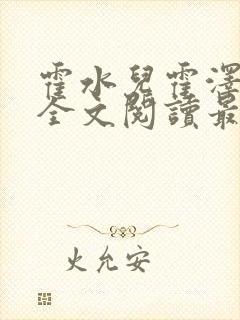 霍水兒霍澤
全文閱讀最
火允安